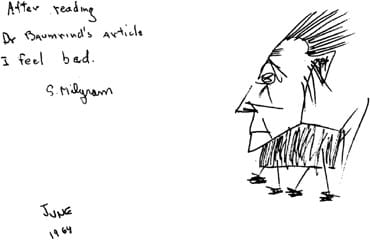 After reading
Dr Baumrind's article
I feel bad.
S. Milgram
JUNE
1964